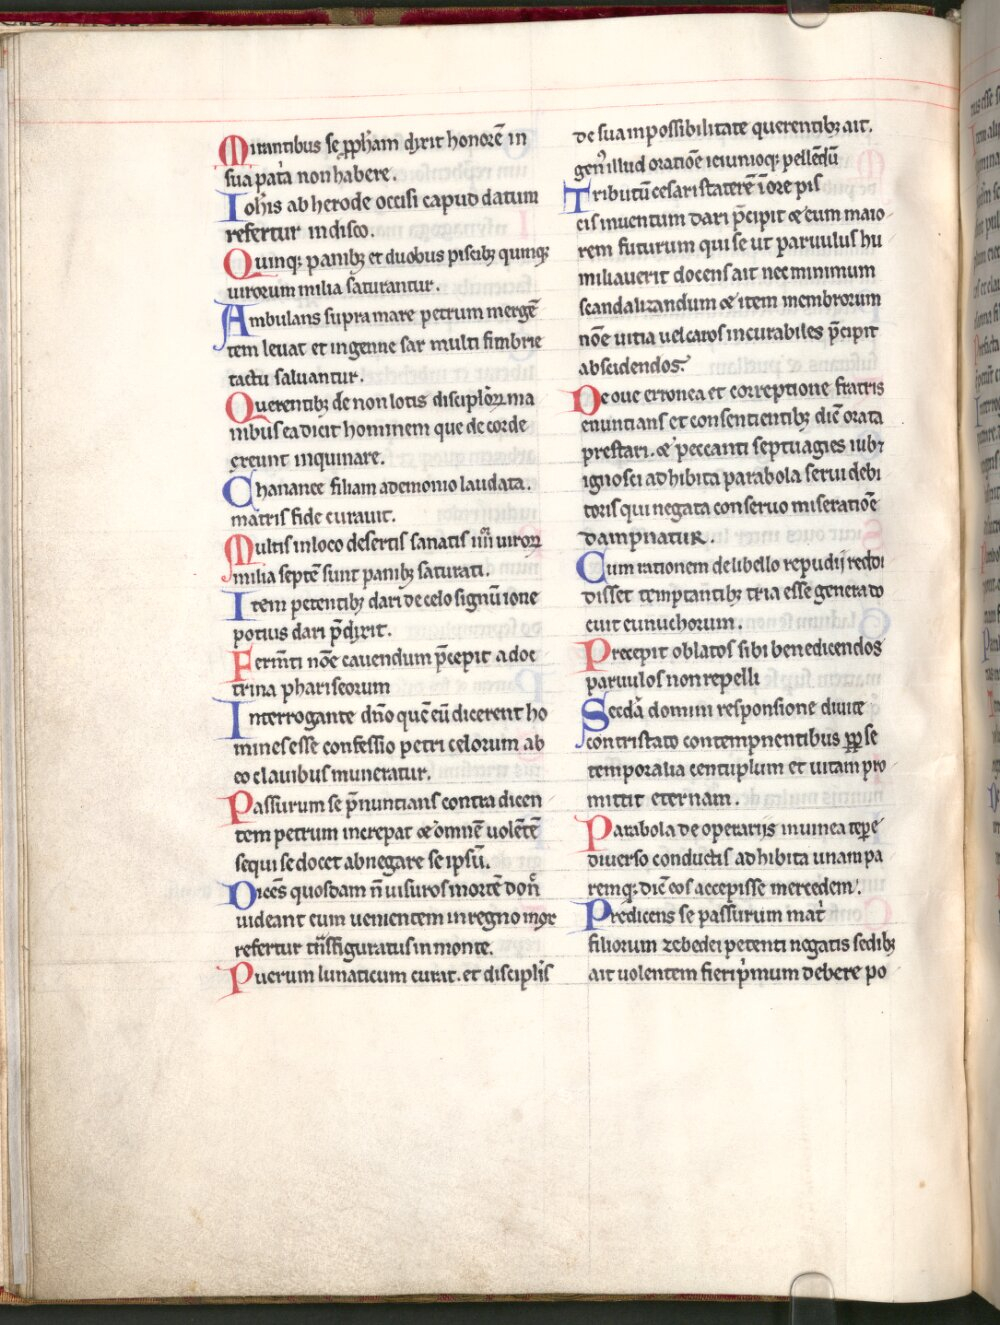 Mirantibus se ꝓpħam dixit honorē in
sua pat̄a non habere.
Ioħis ab herode occisi capud datum
refertur in disco.
Quinqꝫ panibꝫ et duobus piscibꝫ quinqꝫ
uirorum milia saturantur.
Ambulans supra mare petrum mergē
tem leuat et in genne sar multi fimbrie
tactu saluantur.
Querentibꝫ de non lotis disciplōꝝ ma
nibus ea dicit hominem que de corde
exeunt inquinare.
Chananee filiam a demonio laudata.
matris fide curauit.
Multis in loco desertis sanatis iiii uiroꝝ
milia septē sunt panibꝫ saturati.
Item petentibꝫ dari de celo signū ione
potius dari p̄dixit.
Ferm̄ti nōe cauendum p̄cepit a doc
trina phariseorum
Interrogante dn̄o quē eū dicerent ho
mines esse confessio petri celorum ab
eo clauibus muneratur.
Passurum se p̄nuntians contra dicen
tem petrum increpat & omnē uolētē
sequi se docet abnegare se ipsū.
Dicēs quosdam n̄ uisuros mortē don̄
uideant eum uenientem in regno mox
refertur trāsfiguratus in monte.
Puerum lunaticum curat. et discipl̄is
de sua inpossibilitate querentibꝫ ait.
gen̄ illud oratiōe ieiunioqꝫ pellēdū
Tributū cesari staterē ī ore pis
cis inuentum dari p̄cipit & eum maio
rem futurum qui se ut paruulus hu
miliauerit docens ait nec minimum
scandalizandum & item membrorum
nōe uitia uel caros incurabiles p̄cipit
abscidendos.
De oue erronea et correptione fratris
enuntians et consentientibꝫ diē orata
prestari. & peccanti septuagies iubꝫ
ignosci adhibita parabola serui debi
toris qui negata conseruo miseratiōe
dampnatur.
Cum rationem de libello repudij reddi
disset temptantibꝫ tria esse genera do
cuit eunuchorum.
Precepit oblatos sibi benedicendos
paruulos non repelli
Secd̄a domini responsione diuite
contristato contempnentibus ꝓp se
temporalia centuplum et uitam pro
mittit eternam.
Parabola de operarijs in uinea tēpe
diuerso conductis adhibita unam pa
remqꝫ diē eos accepisse mercedem.
Predicens se passurum mat̄
filiorum zebedei petenti negatis sedibꝫ
ait uolentem fieri p̄mum debere po